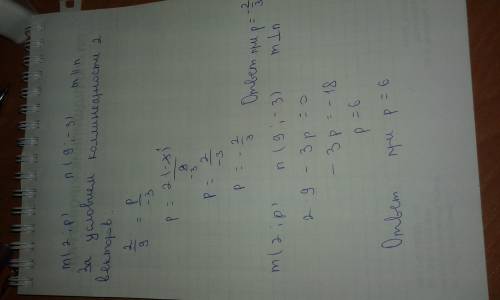 m(2;p) n(9;-3) m || n
За условием коллинеарности 2
векторов.
2/9 = p/-3
p = 2(-3)/9
p = 2/-3
p = -2/3 Ответ при p = -2/3
m(2;p) n(9;-3) m⊥n
2 9 - 3p = 0
-3p = -18
p = 6
Ответ при p = 6